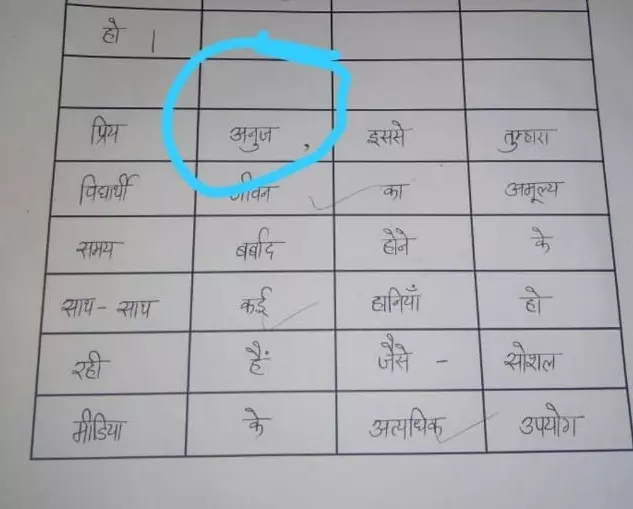 हो |
प्रिय अनुज , इससे तुम्हारा
विद्यार्थी जीवन का अमूल्य
समय बर्बाद होने के
साथ - साथ कई हानियाँ हो
रही हैं जैसे - सोशल
मीडिया के अत्यधिक उपयोग